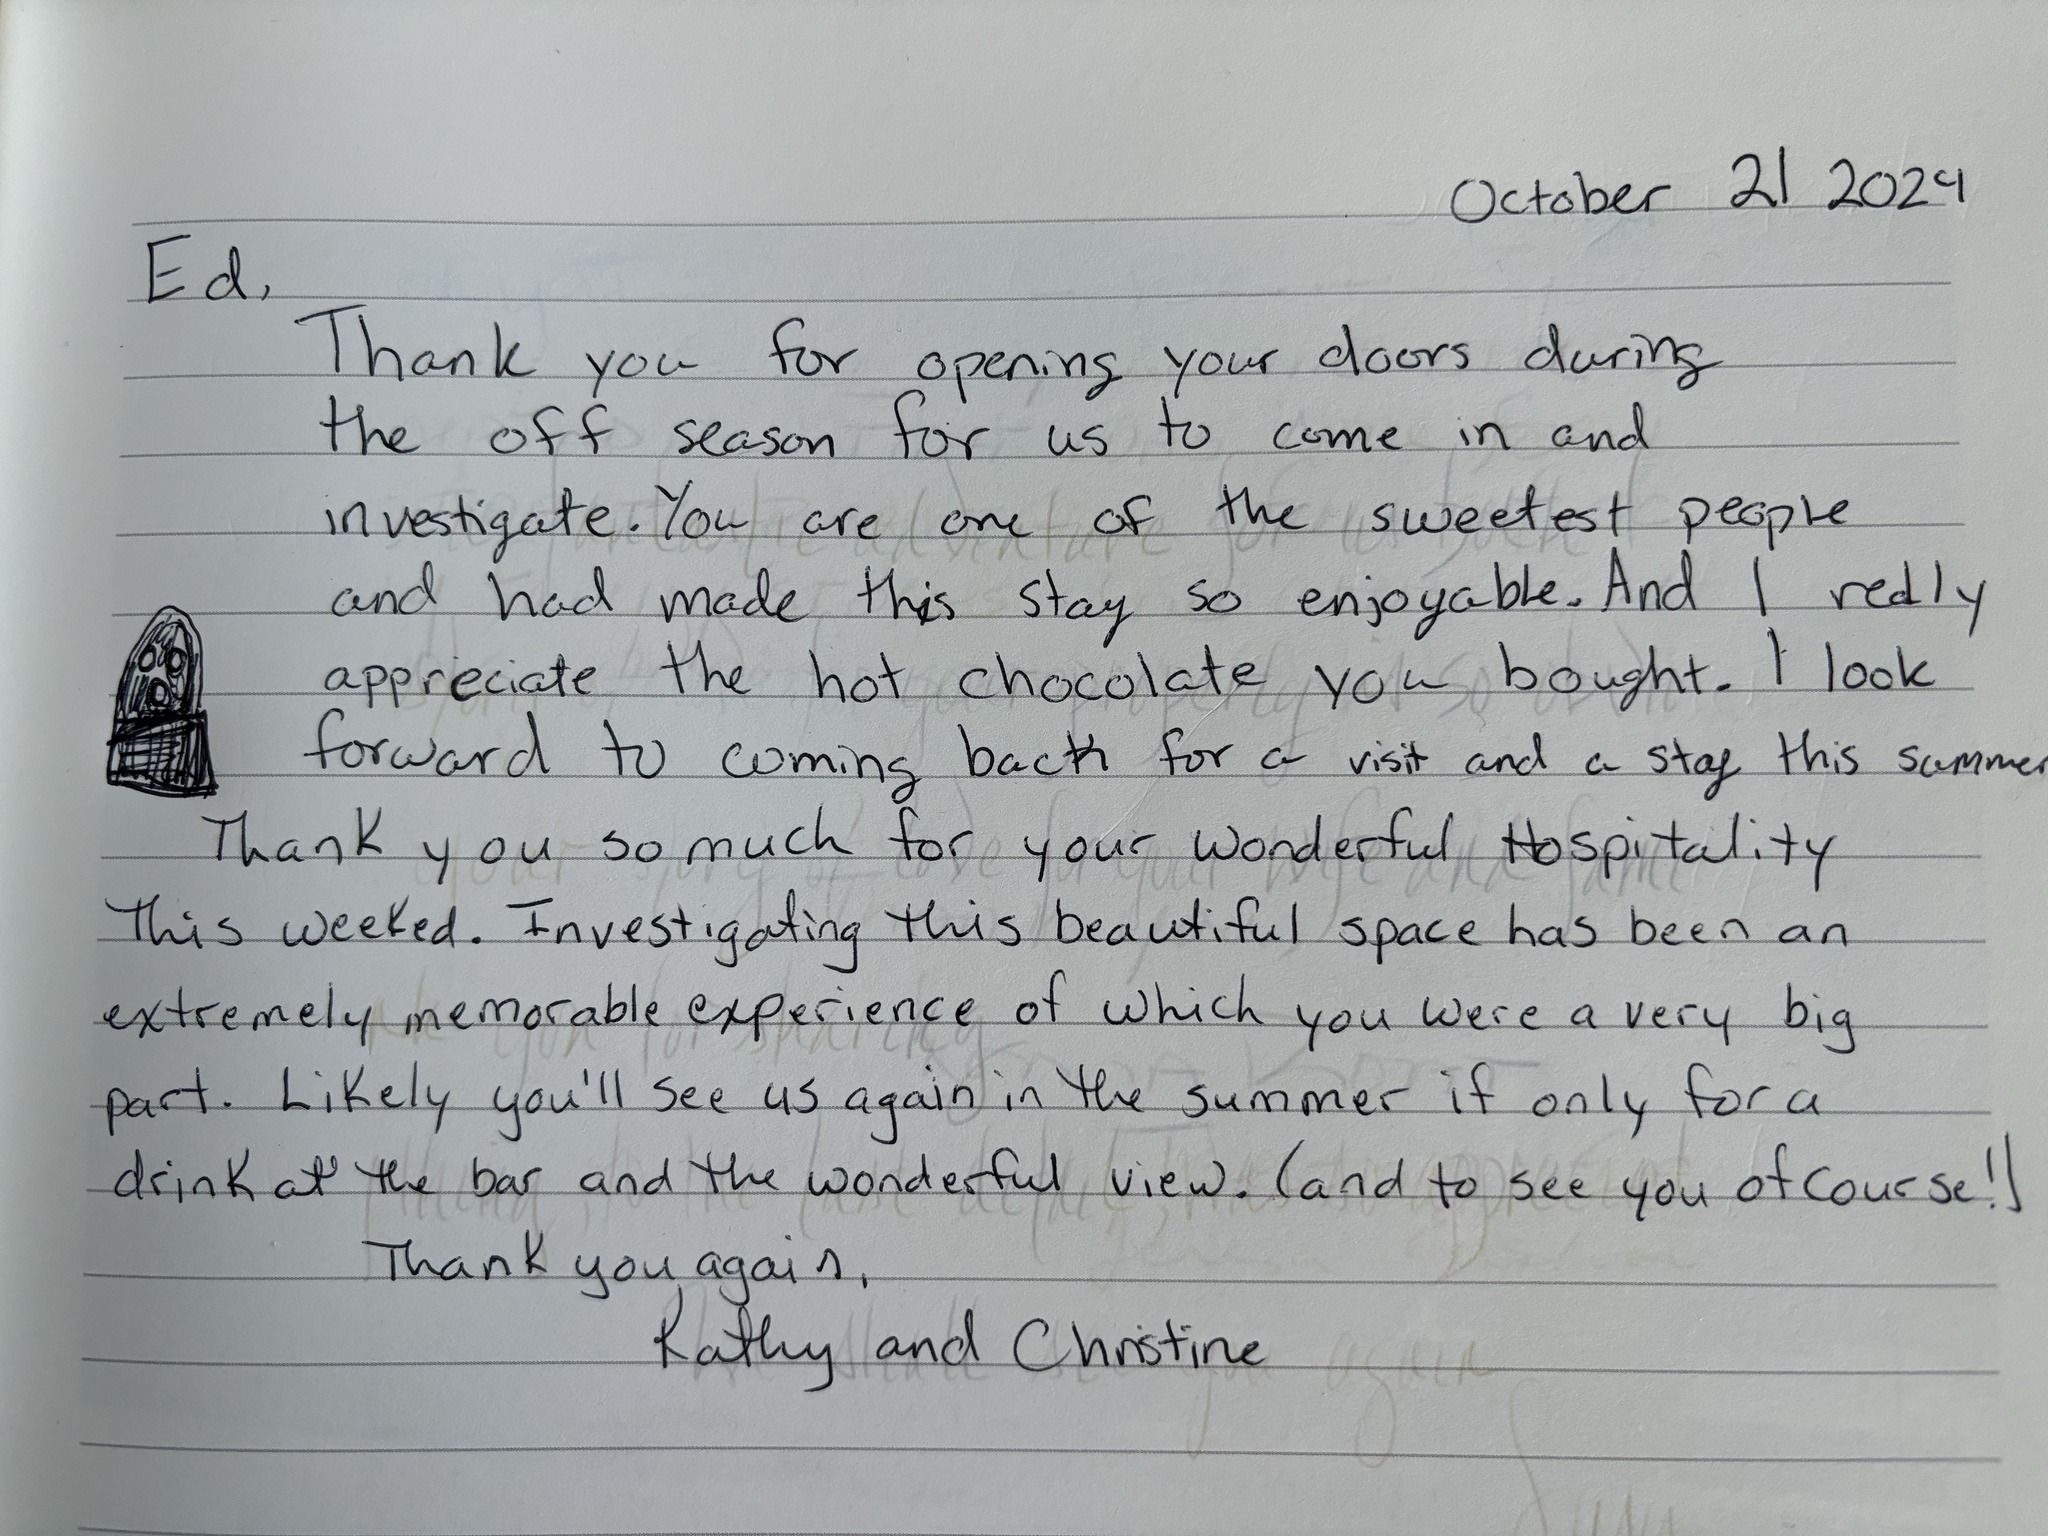 October 21 2024
Ed,
Thank you for opening your doors during
the off season for us to come in and
investigate. You are one of the sweetest people
and had made this stay so enjoyable. And I really
appreciate the hot chocolate you bought. I look
forward to coming back for a visit and a stay this summer
Thank you so much for your wonderful Hospitality
This weeked. Investigating this beautiful space has been an
extremely memorable experience of which you were a very big
part. Likely you'll see us again in the summer if only for a
drink at the bar and the wonderful view. (and to see you of course!)
Thank you again,
Kathy and Christine